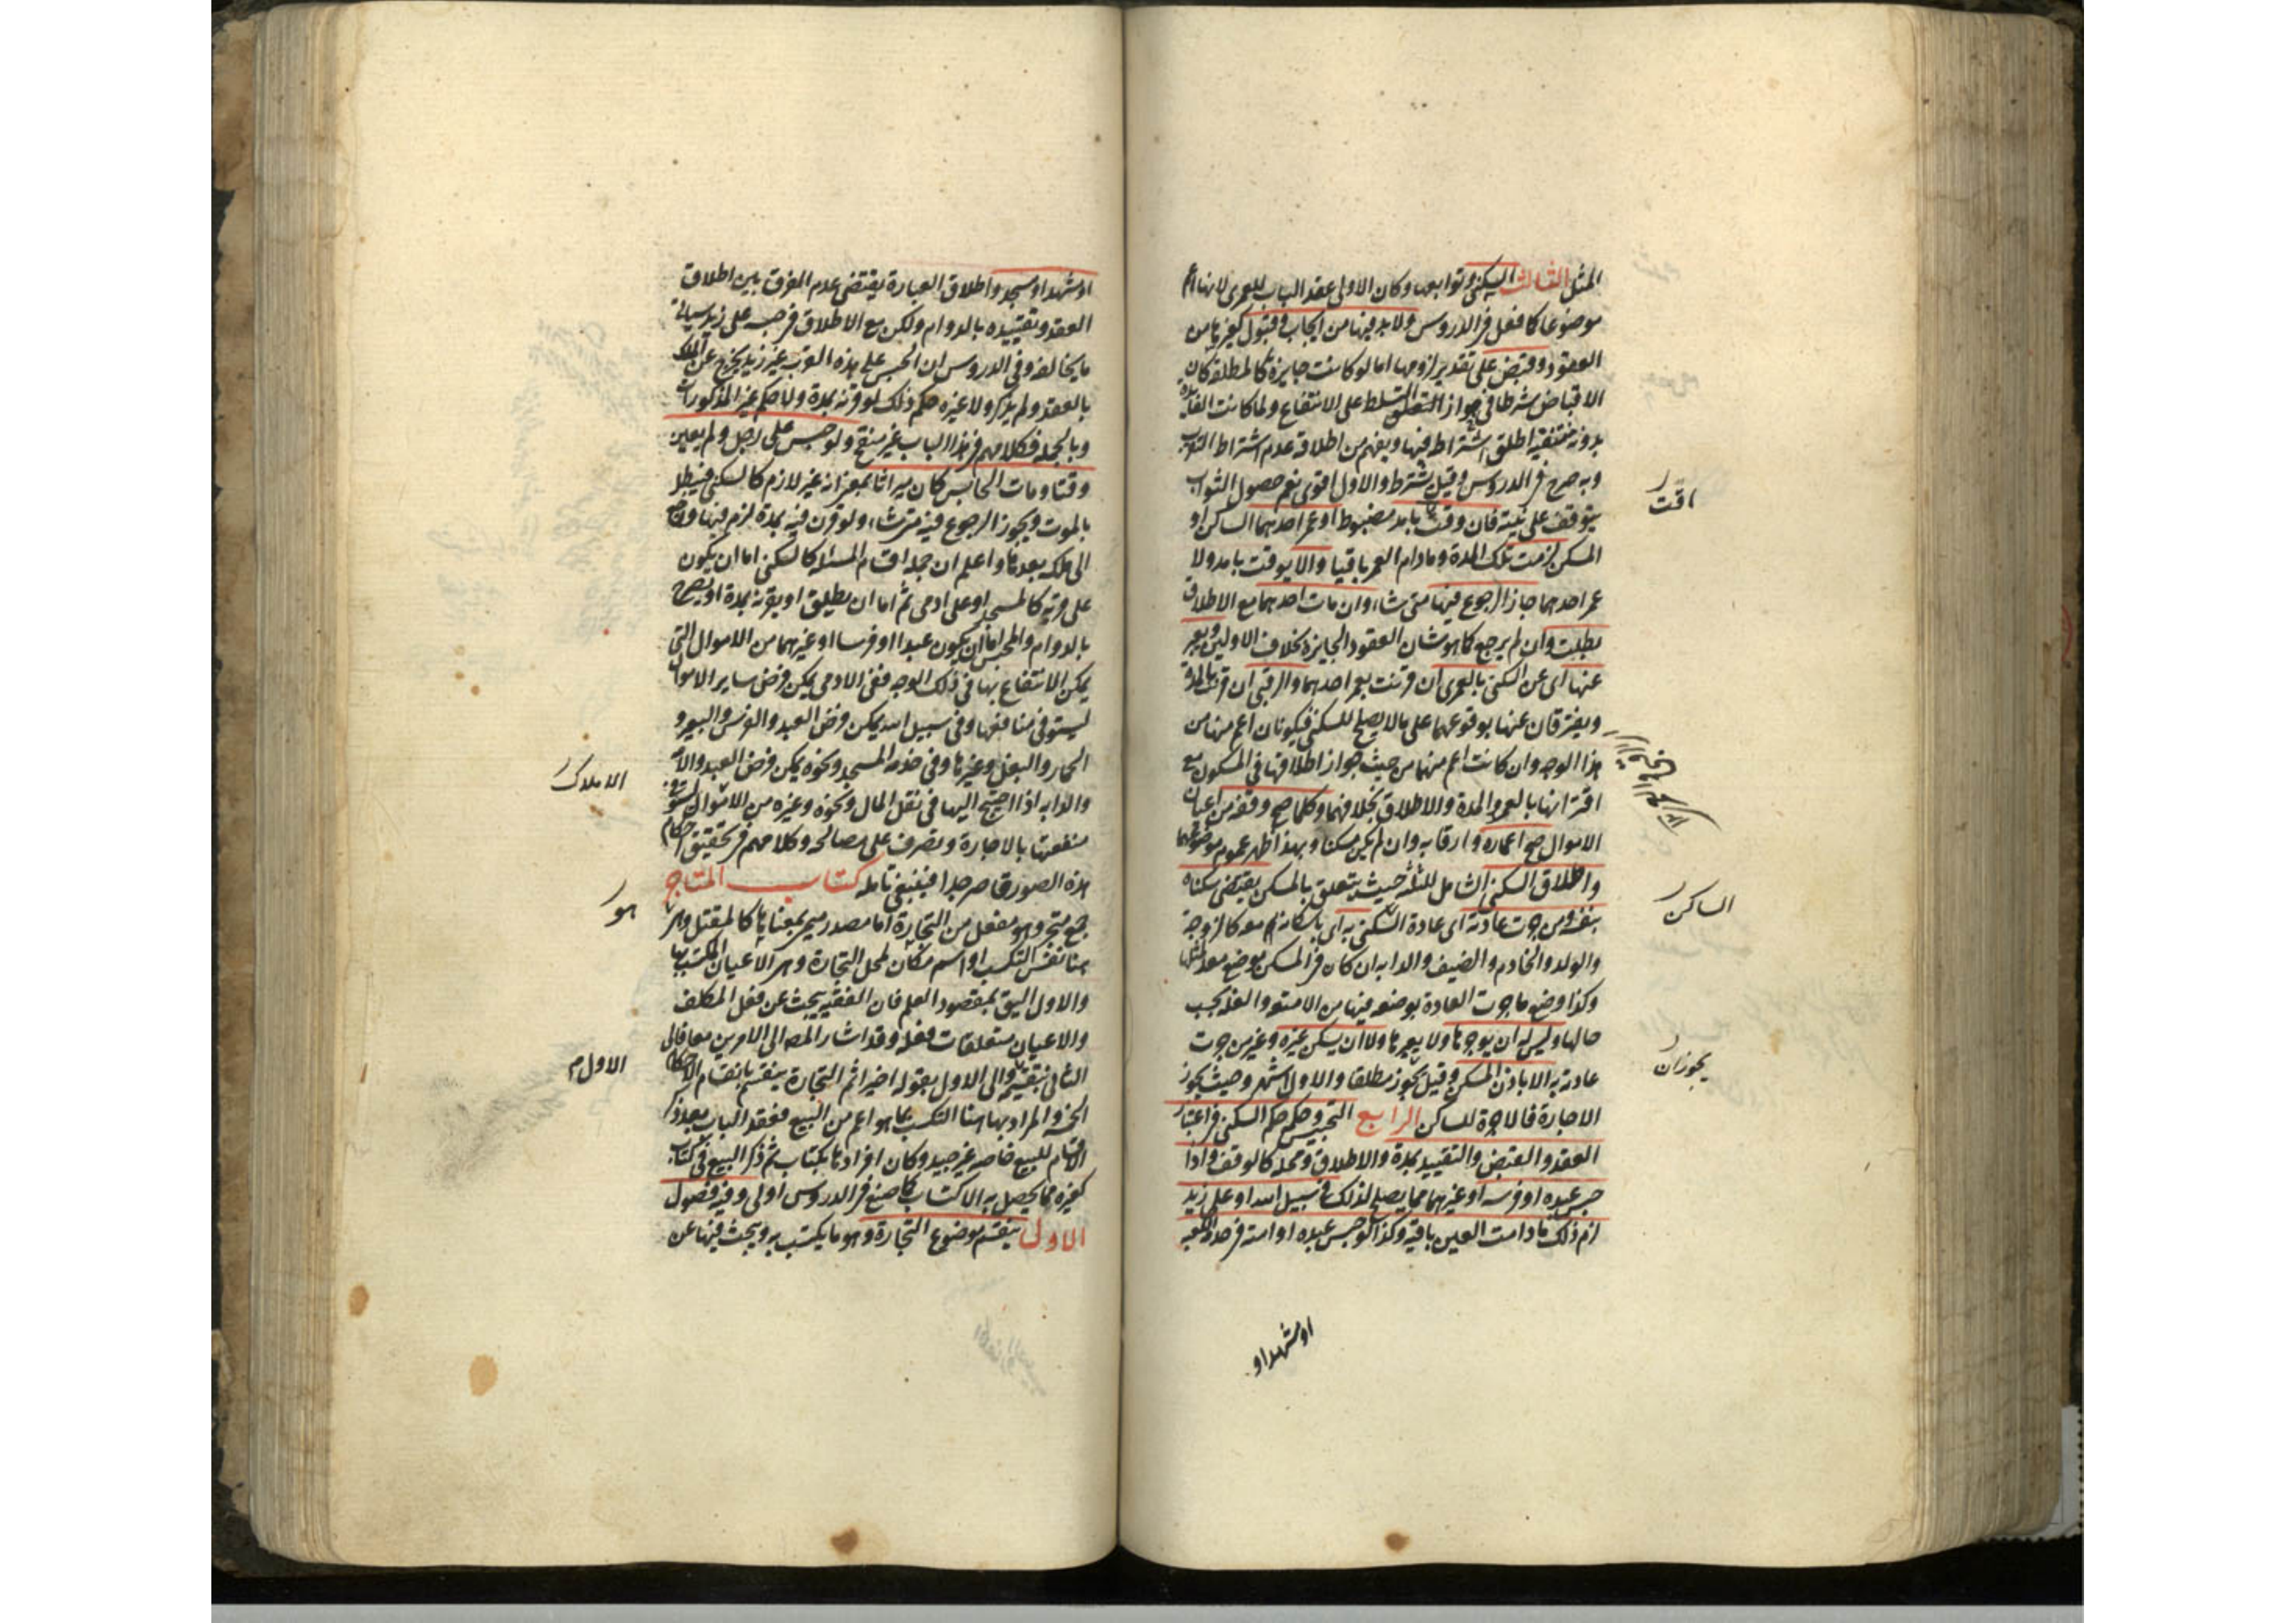 المثل الثالث السكنى وتوابعها وكان الاولى عقد الباب للعمرى لانها اعم
موضوعا كما فعل في الدروس ولا بد فيها من ايجاب وقبول كغيرها من
العقود وقبض على تقدير لزومها اما لو كانت جايزة كالمطلقة كان
الاقباض شرطا في جواز التسلط على الانتفاع ولما كانت الفايدة
بدونه منتفية اطلق اشتراطه فيها ويفهم من اطلاقه عدم اشتراط التقرب
وبه صرح في الدروس وقيل يشترط والاول اقوى نعم حصول الثواب
يتوقف على نيته فان وقت بامد مضبوط او عمر احدهما الساكن او
المسكن لزمت تلك المدة وما دام العمر باقيا والا يوقت بامد ولا
عمر احدهما جاز الرجوع فيها متى شاء وان مات احدهما مع الاطلاق
بطلت وان لم يرجع كما هو شان العقود الجايزة بخلاف الاولين ويعبر
عنها اى عن السكنى بالعمرى ان قرنت بعمر احدهما والرقبى ان قرنت بالمدة
ويفترقان عنها بوقوعهما على ما لا يصلح للسكنى فيكونان اعم منها من
هذا الوجه وان كانت اعم منهما من حيث جواز اطلاقها في المسكون مع
اقترانها بالعمر والمدة والاطلاق بخلافهما وكلما صح وقفه من اعيان
الاموال صح اعماره وارقابه وان لم يكن مسكنا وبهذا ظهر عموم موضوعهما
واطلاق السكنى الشامل للثلثة حيث يتعلق بالمسكن يقتضى سكناه
بنفسه ومن جرت عادته اى عادة السكنى به اى باسكانهم معه كالزوجة
والولد والخادم والضيف والدابه ان كان في المسكن موضع معد لمثلها
وكذا وضع ما جرت العادة بوضعه فيها من الامتعه والغله بحسب
حالها وليس له ان يوجرها ولا يعيرها ولا ان يسكن غيره وغير من جرت
عادته به الا باذن المسكن وقيل يجوز مطلقا والاول اشهر وحيث يجوز
الاجارة فالاجرة للساكن الرابع التحبيس وحكمه حكم السكنى في اعتبار
العقد والقبض والتقييد بمدة والاطلاق ومحله كالوقف واذا
حبس عبده او فرسه او غيرهما مما يصلح لذلك في سبيل الله او على زيد
لزم ذلك ما دامت العين باقية وكذا لو حبس عبده او امته في خدمة الكعبه
او مشهد او
اقت
الساكن
يجوز ان
او مشهد او مسجد واطلاق العبارة يقتضى عدم الفرق بين اطلاق
العقد وتقييده بالدوام ولكن مع الاطلاق في حبسه على زيد سياتى
ما يخالفه وفي الدروس ان الحبس على هذه القرب غير زيد يخرج عن الملك
بالعقد ولم يذكر هو ولا غيره حكم ذلك لو قرنه بمدة ولا حكم غير المذكورات
وبالجملة فكلامهم في هذا الباب غير منقح ولو حبس على رجل ولم يعين
وقتا ومات الحابس كان ميراثا بمعنى انه غير لازم كالسكنى فيبطل
بالموت ويجوز الرجوع فيه متى شاء ولو قرن فيه بمدة لزم فيها ورجع
الى ملكه بعدها واعلم ان جملة اقسام المسئلة كالسكنى اما ان يكون
على قربة كالمسجد او على ادمى ثم اما ان يطلق او يقرنه بمدة او يصرح
بالدوام والمحبس اما ان يكون عبدا او فرسا او غيرهما من الاموال التى
يمكن الانتفاع بها في ذلك الوجه ففى الادمى يمكن فرض ساير الاموال
ليستوفى منافعها وفى سبيل الله يمكن فرض العبد والفرس والبعير و
الحمار والبغل وغيرها وفى خدمه المسجد ونحوه يمكن فرض العبد والامة
والدابه اذا احتيج اليها في نقل المال ونحوه وغيره من الاموال ليستوفى
منفعتها بالاجارة ويصرف على مصالحه وكلامهم في تحقيق احكام
هذه الصور قاصر جدا فينبغى تامله كتاب المتاجر
جمع متجر وهو مفعل من التجارة اما مصدر ميمى بمعناها كالمقتل وهو
هنا نفس التكسب او اسم مكان لمحل التجارة وهى الاعيان المكتسب بها
والاول اليق بمقصود العلم فان الفقيه يبحث عن فعل المكلف
والاعيان متعلقات فعله وقد اشار المصه الى الامرين معا فالى
الثانى بتقسيمه والى الاول بقوله اخيرا ثم التجارة ينقسم بانقسام الاحكام
الخمسة والمراد بها هنا التكسب بما هو اعم من البيع فعقد الباب بعد ذكر
الاقسام للبيع خاصه غير جيد وكان افرادها بكتاب ثم ذكر البيع في كتاب
كغيره مما يحصل به الاكتساب كما صنع في الدروس اولى وفيه فصول
الاول ينقسم موضوع التجارة وهو ما يكتسب به ويبحث فيها عن
الاملاك
هو
الاول م